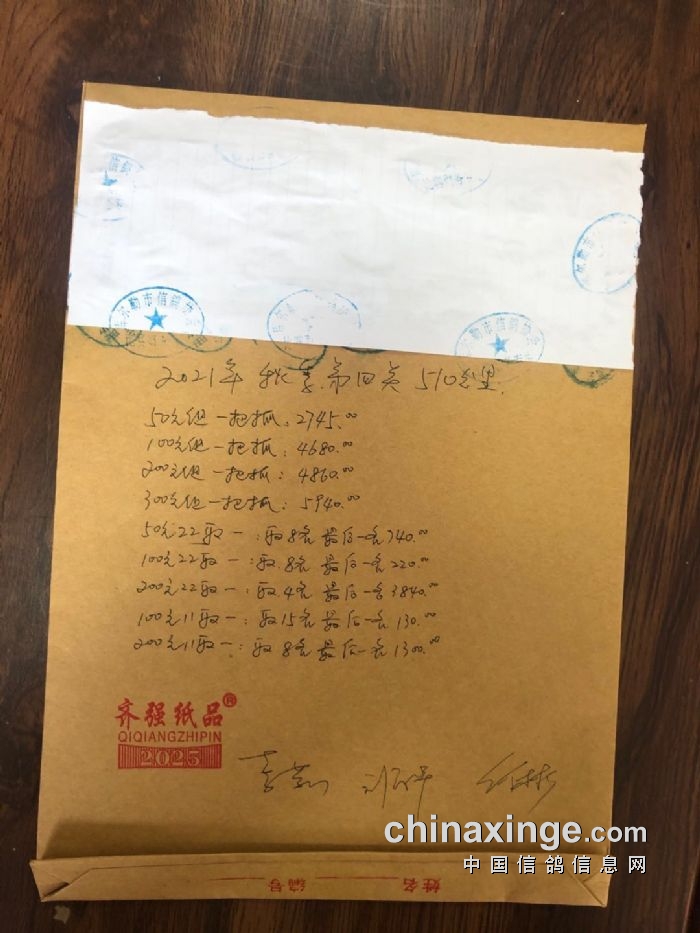 尔勒市信鸽
尔勒市信鸽
2021年 秋季.第四关 510公里.
50元组一把抓: 2745.00
100元组一把抓: 4680.00
200元组一把抓: 4860.00
300元组一把抓: 5940.00
50元22取一: 取8名 最后一名740.00
100元22取一: 取8名 最后一名220.00
200元22取一: 取4名 最后一名3840.00
100元11取一: 取15名 最后一名130.00
200元11取一: 取8名 最后一名1300.00
齐强纸品®
QIQIANGZHIPIN
2025
chinaxinge.com
中国信鸽信息网
姓名 编号